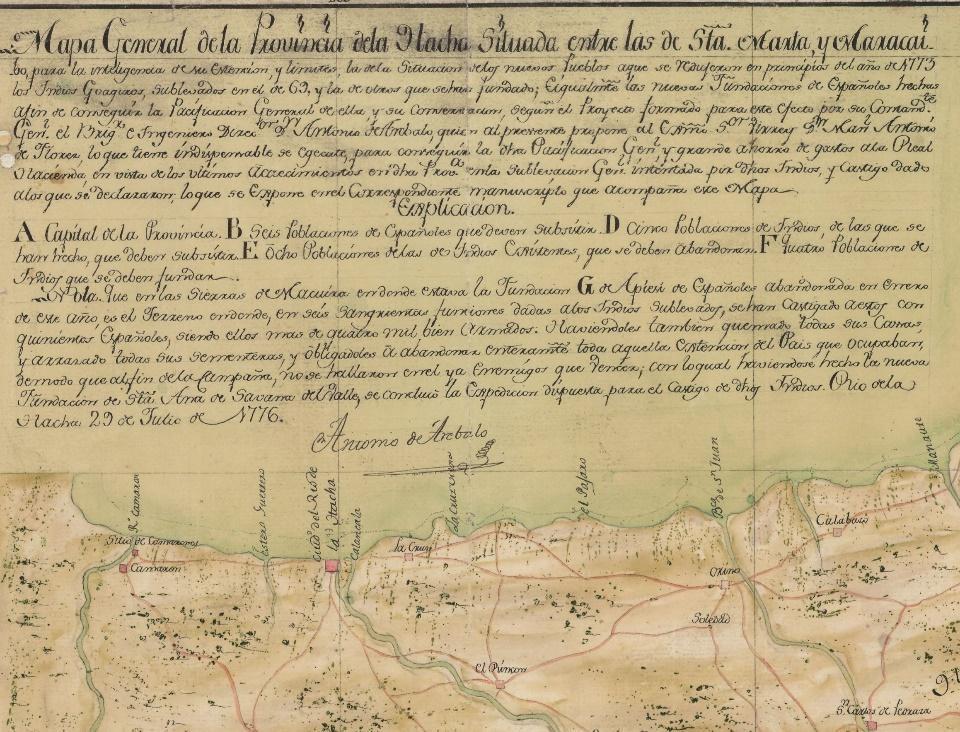 Mapa General de la Provincia dela Hacha Situada entre las de Sta. Marta, y Maracai-
bo, para la inteligencia de su Extension, y limites, la de la Situacion delos nuevos Pueblos aque se Redujeron en principios del año de 1775
los Indios Goagiros, Sublevados en el de 69, y la de otros que sehan fundado; Eigualmte las nuevas Fundaciones de Españoles hechas
afin de conseguir la Pacificacion General de ella y su conservacion, segun el Proyecto formado para este efecto por su Comandte
Genl. el Brigr. e Ingeniero Direcor Dn Antonio de Arebalo, quien al presente propone al Exmo Sor Virrey Dn Manl Antonio
de Florez, lo que tiene indispensable se egecute, para conseguir la dha Pacificacion Genl. y grande ahorro de gastos ala Real
Hacienda en vista de los ultimos Acaecimientos en dha Prova. en la Sublevacion Genl. intentada por dhos Indios, y Castigo dado
alos que se declararon, lo que se Expone en el Correspondiente manuscripto que acompaña este Mapa.
Explicacion.
A Capital de la Provincia. B Seis Poblaciones de Españoles que deven subsistir. D Cinco Poblaciones de Indios, de las que se
han hecho, que deben subsistir. E Ocho Poblaciones de las de Indios Existentes, que se deben abandonar. F Quatro Poblaciones de
Indios que se deben fundar.
Nota. Que en las Sierras de Macuira en donde estava la Fundacion G de Apiesi de Españoles abandonada en Enero
de este año, es el Terreno en donde, en seis sangrientas funciones dadas alos Indios Sublevados, se han Castigado aestos con
quinientos Españoles, siendo ellos mas de quatro mil bien Armados. Haviendoles tambien quemado todas sus Casas,
y arrasado todas sus sementeras, y obligadoles à abandonar enteramte toda aquella Extencion del Pais que ocupaban,
demodo que al fin de la Campaña, no se hallaron en el ya Enemigos que vencer; con loqual haviendose hecho la nueva
Fundacion de Sta Ana de Savana del Valle, se concluió la Expedicion dispuesta para el Castigo de dhos Indios. Rio de la
Hacha 29 de Julio de 1776.
Antonio de Arebalo
R. Camaron
Estero Guerrero
Ciud del Rio de
la Hacha
Calancala
El Pajaro
Bca de Sn Juan
Manaure
Sitio de Camarones
Camaron
La Cruz
Calabazo
Orino
Soledad
El Rincon
Sn Carlos de Pedraza